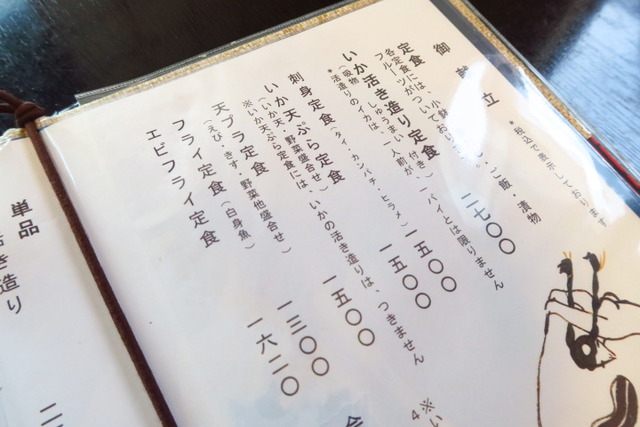 御献立
*税込で表示しております
定食には、小鉢
ご飯・漬物
各定食に
フルーツがついてお
いか活き造り定食 二七〇〇
(吸物、しゅうまい一人前が付き)
*活造りのイカは、一パイとは限りません
刺身定食 一五〇〇
(タイ、カンパチ、ヒラメ)
いか天ぷら定食 一五〇〇
(いか天・野菜盛合せ)
※いか天ぷら定食には、いかの活き造りは、つきません
天プラ定食 一五〇〇
(えび・きす・野菜他盛合せ)
フライ定食 一三〇〇
(白身魚)
エビフライ定食 一六二〇
単品
き造り
二
※い